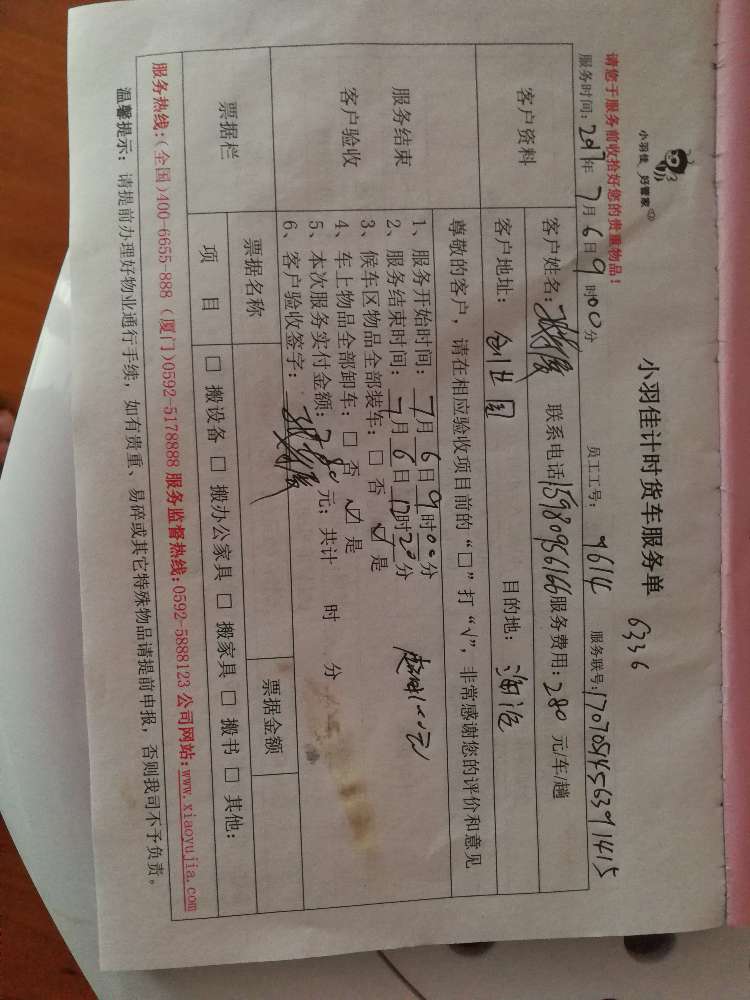 小羽佳 好管家
小羽佳计时货车服务单
6336
请您于服务前收拾好您的贵重物品！
服务时间：2017年7月6日9时00分 员工工号：9614 服务联号：170705456391415
客户资料
客户姓名： 联系电话15980956166服务费用：280元/车/趟
客户地址：创世园 目的地：海沧
尊敬的客户，请在相应验收项目前的“□”打“√”，非常感谢您的评价和意见
服务结束
客户验收
1、服务开始时间：7月6日9时00分
2、服务结束时间：7月6日12时20分
3、候车区物品全部装车：□ 否 ☑ 是
4、车上物品全部卸车：□ 否 ☑ 是
5、本次服务实付金额：280元；共计 时 分
6、客户验收签字：
票据栏
票据名称 票据金额
项 目 □ 搬设备 □ 搬办公家具 □ 搬家具 □ 搬书 □ 其他：
服务热线：(全国)400-6655-888 (厦门)0592-5178888 服务监督热线：0592-5888123 公司网站：www.xiaoyujia.com
温馨提示：请提前办理好物业通行手续，如有贵重、易碎或其它特殊物品请提前申报，否则我司不予负责。